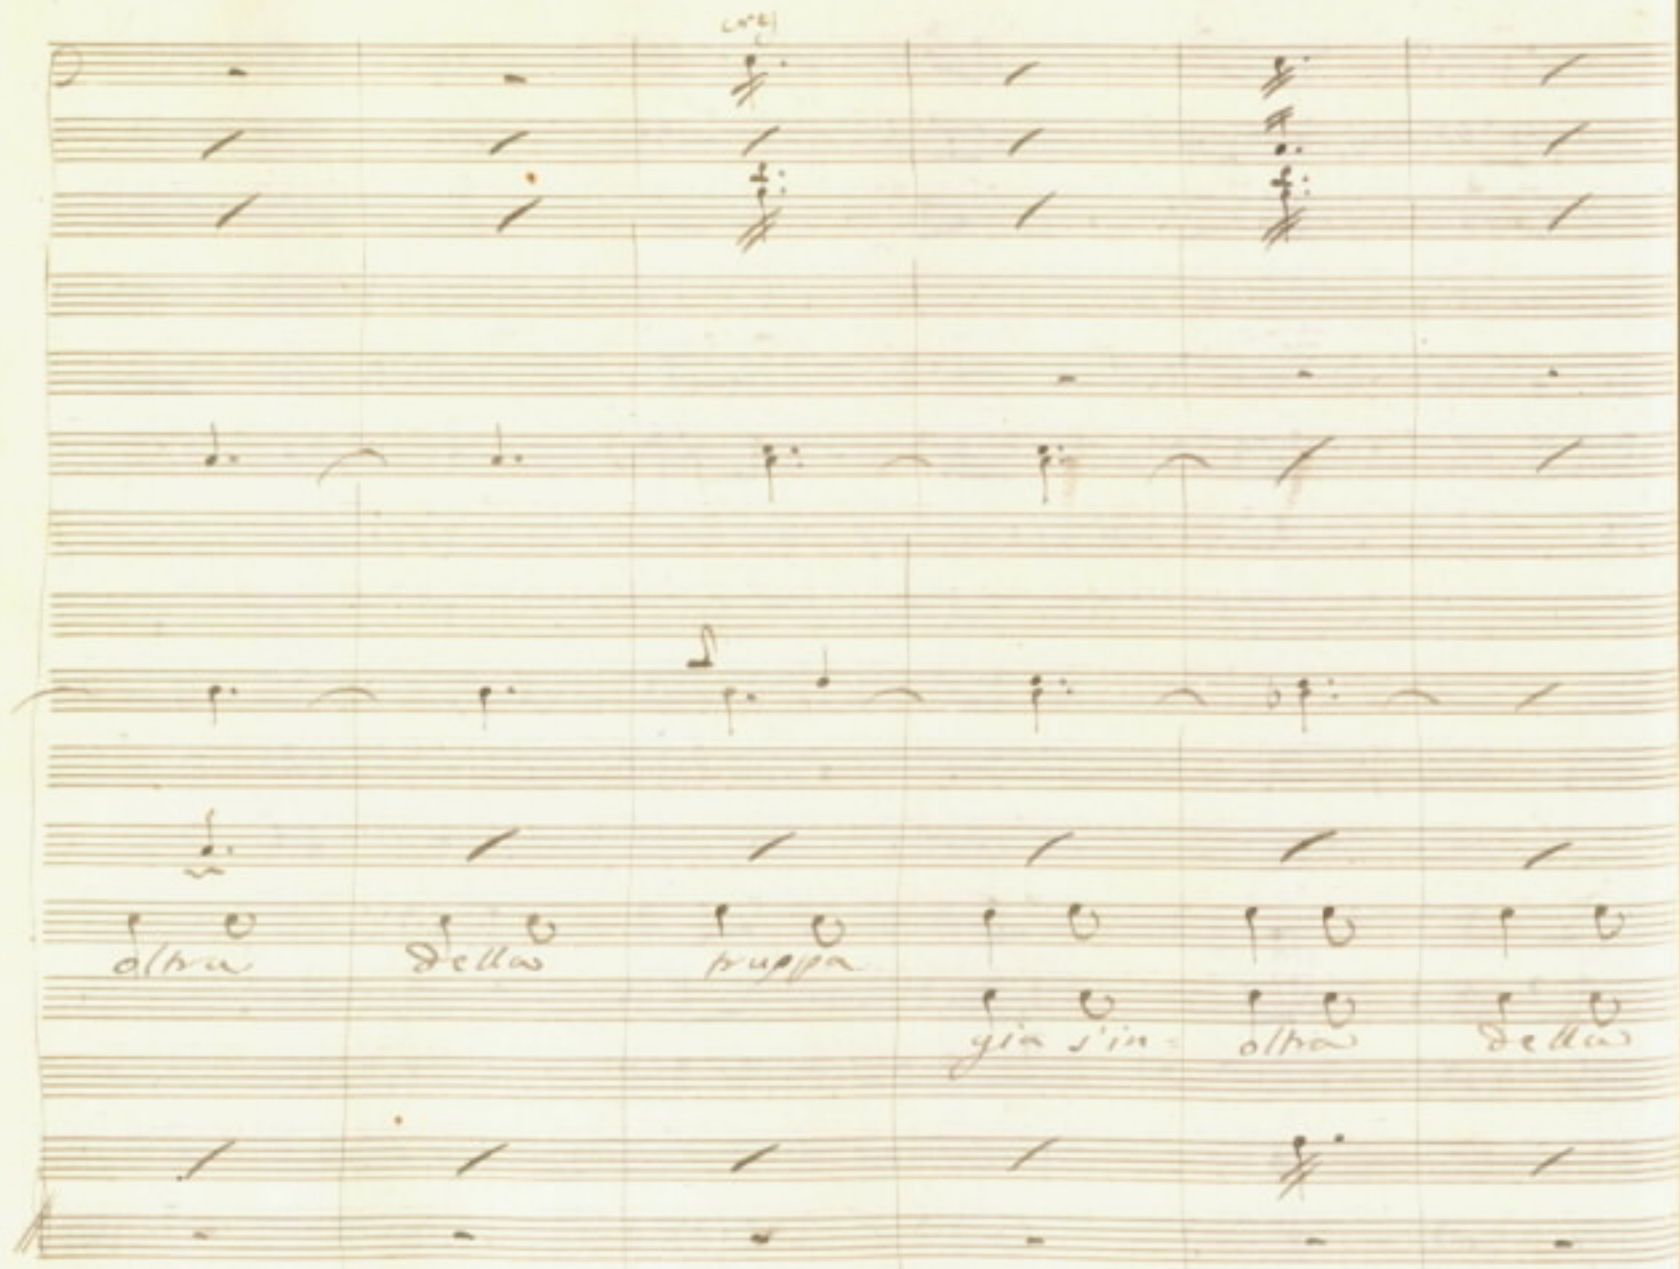 oltra della truppa
gia s'in = oltra della